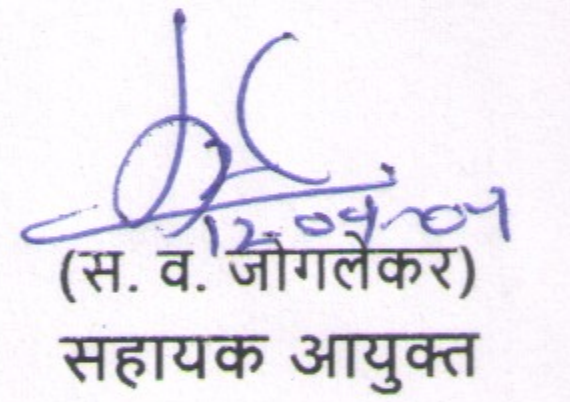 12-04-04
(स. व. जोगलेकर)
सहायक आयुक्त